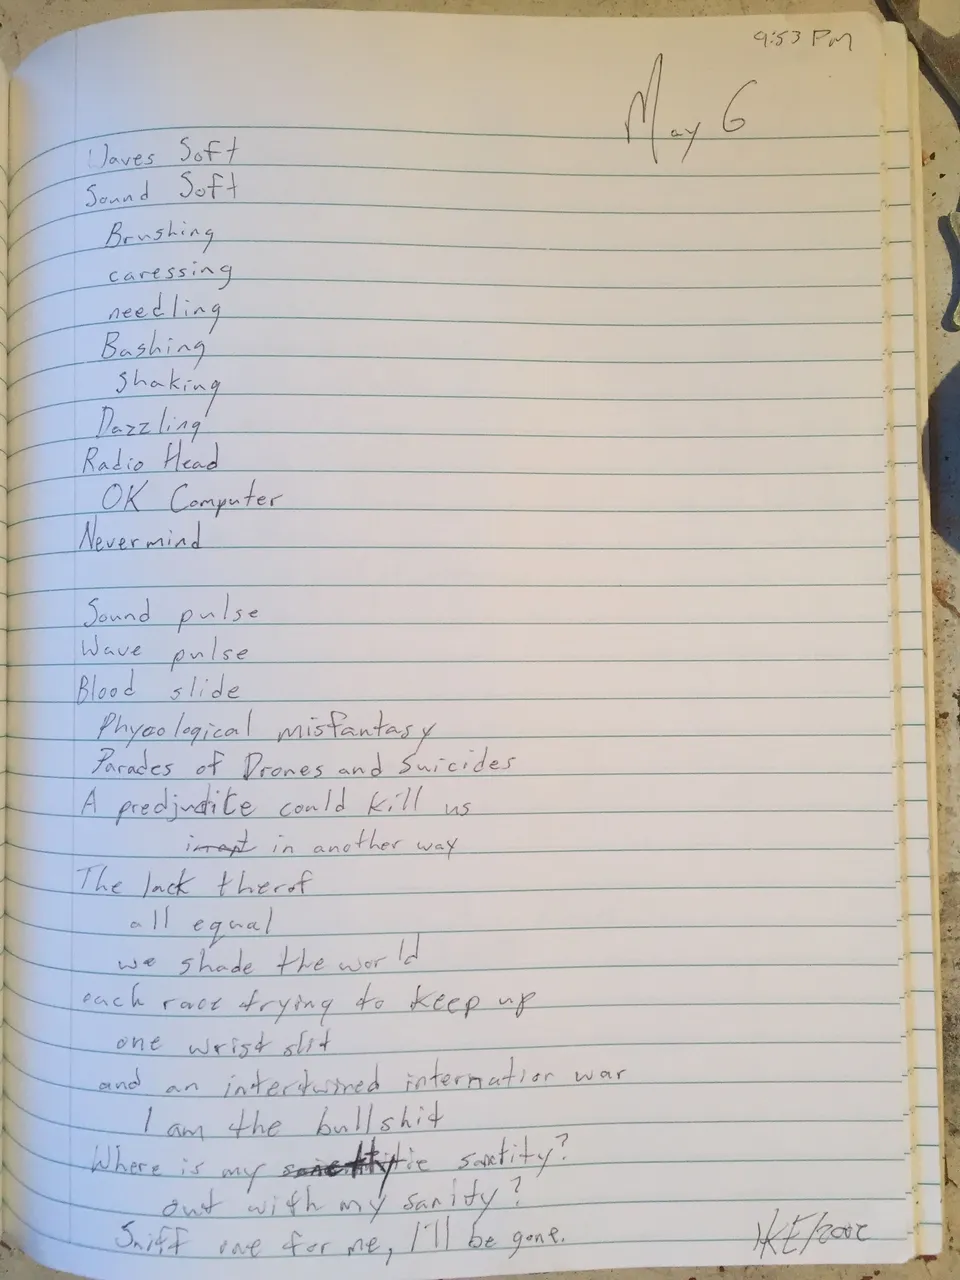 9:53 PM
May 6
Waves Soft
Sound Soft
Brushing
caressing
needling
Bashing
shaking
Dazzling
Radio Head
OK Computer
Nevermind
Sound pulse
Wave pulse
Blood slide
misfantasy
Parades of Drones and Suicides
A predjudice could kill us
in another way
The lack therof
all equal
we shade the world
each race trying to keep up
one wrist slit
and an intertwined internation war
I am the bullshit
Where is my sanctity?
out with my sanity?
Sniff one for me, I'll be gone.